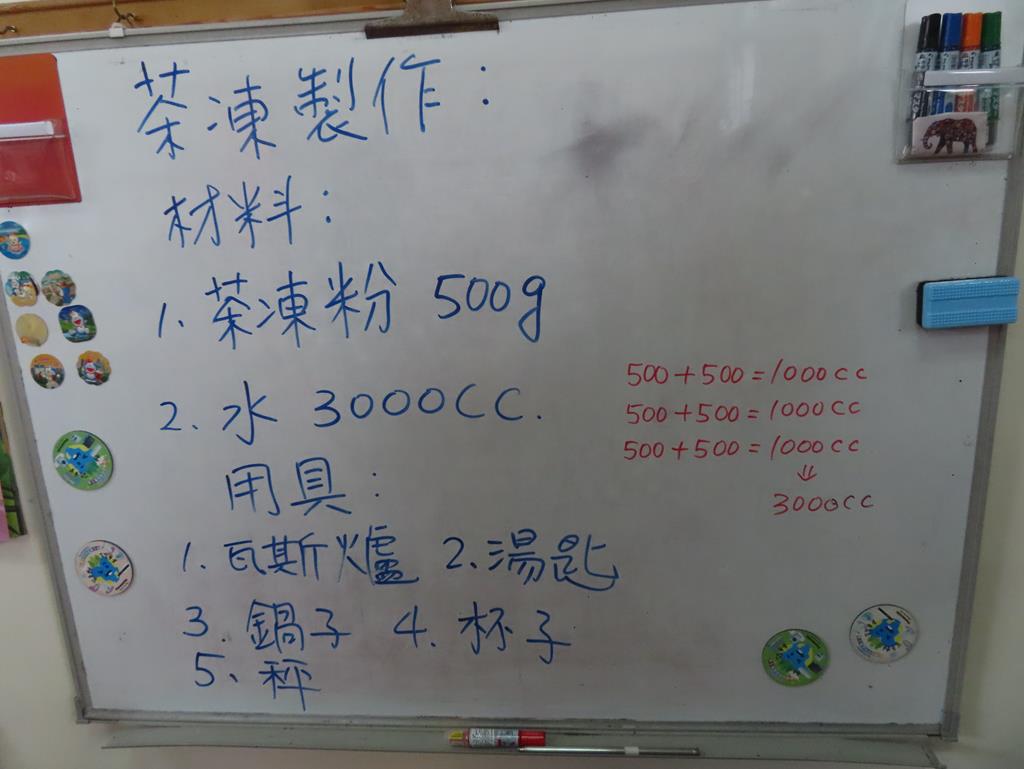 茶凍製作：
材料：
1. 茶凍粉 500g
2. 水 3000CC.
用具：
1. 瓦斯爐 2. 湯匙
3. 鍋子 4. 杯子
5、秤
500+500=1000CC
500+500=1000CC
500+500=1000CC
⇓
3000CC